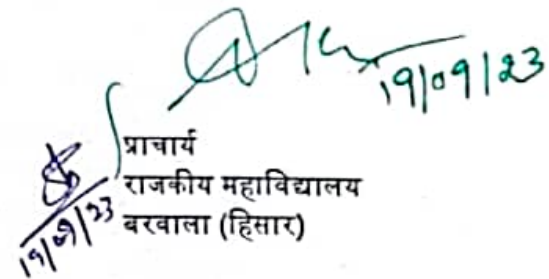 19/09/23
प्राचार्य
राजकीय महाविद्यालय
बरवाला (हिसार)
19/09/23